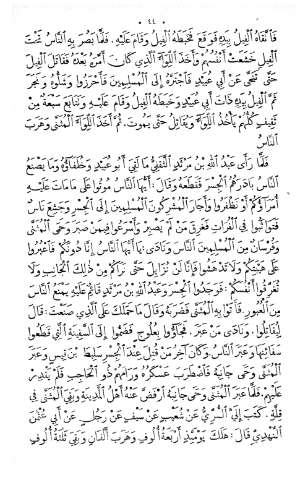 ٤٤
فاتقاه الفيل بيده فوقع فخبطه الفيل وقام عليه. فلما بصر به الناس تحت
الفيل خشعت أنفسهم وأخذ اللواء الذي كان أمره بعده فقاتل الفيل
حتى تنحى عن أبي عبيد فاجتره إلى المسلمين فأحرزوا وشلوه
الفيل بيده دأب أبي عبيد وخبطه الفيل وقام عليه وتتابع سبعة من
ثقيف كلهم يأخذ اللواء ويقاتل حتى يموت. ثم أخذ اللواء المثنى وهرب
الناس
فلما رأى عبد الله بن مرثد الثقفي ما لقي أبو عبيد وخلفاؤه وما يصنع
الناس بادرهم الجسر فقطعه وقال: أيها الناس موتوا على ما مات عليه
أو تظفروا وحاز المشركون المسلمين إلى الجسر وخشع ناس
فتواثبوا في الفرات فغرق من لم يصبر وأسرعوا فيمن صبر وحمى المثنى
وفرسان من المسلمين الناس ونادى: يا أيها الناس إنا دونكم فاعبروا
على هينتكم ولا تدهشوا فإنا لن نزايل حتى نراكم من ذلك الجانب ولا
تغرقوا أنفسكم. فوجدوا الجسر وعبد الله بن مرثد قائم عليه يمنع الناس
من العبور. فأتوا به المثنى فضربه وقال: ما حملك على الذي صنعت. قال:
ليقاتلوا. ونادى من عبر. فجاؤوا بعلوج فضموا إلى السفينة التي قطعوا
سفائنها وعبر الناس وكان آخر من قتل عند الجسر سليط بن قيس وعبر
المثنى وحمى جانبه فاضطرب عسكره ورامهم ذو الحاجب فلم يقدر
عليهم. فلما عبر المثنى وحمى جانبه ارفض عنه أهل المدينة وبقي المثنى في
قلة. كتب إلي السري عن شعيب عن سيف عن رجل عن أبي عثمن
النهدي قال: هلك يومئذ أربعة ألوف وهرب ألفان وبقي ثلثة ألوف